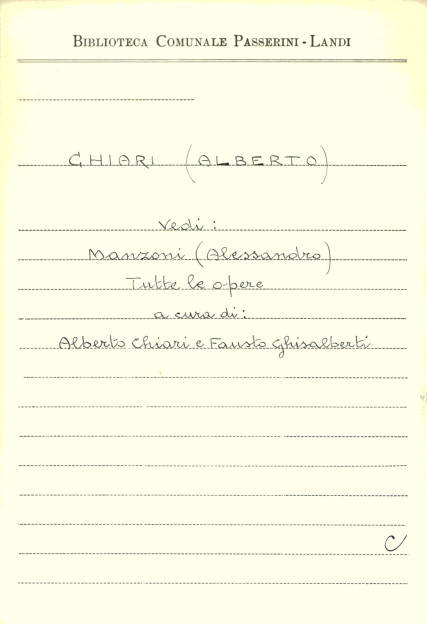 BIBLIOTECA COMUNALE PASSERINI - LANDI
CHIARI (ALBERTO)
Vedi:
Manzoni (Alessandro)
Tutte le opere
a cura di:
Alberto Chiari e Fausto Ghisalberti
C